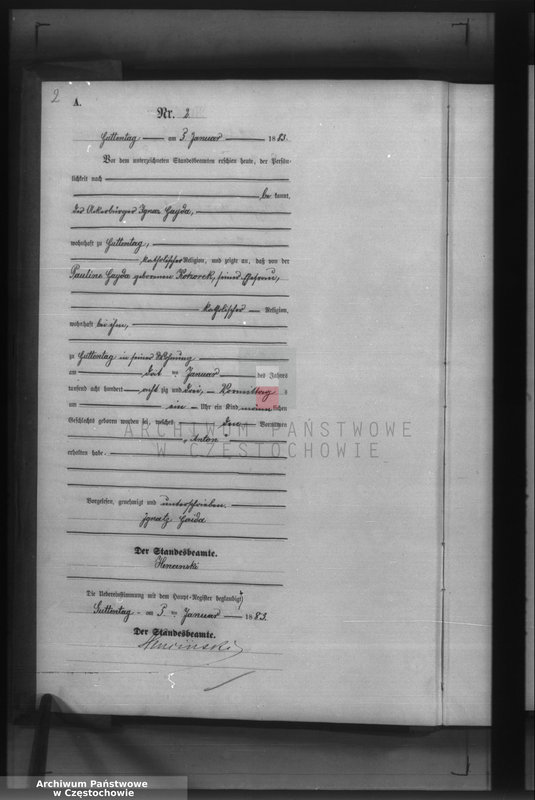 2
A.
Nr. 2
Guttentag am 3 Januar 1883.
Vor dem unterzeichneten Standesbeamten erschien heute, der Persön-
lichkeit nach
be kannt,
der Ackerbürger Ignaz Gayda,
wohnhaft zu Guttentag,
katholischer Religion, und zeigte an, daß von der
Pauline Gayda geborenen Konorek, seiner Ehefrau,
katholischer Religion,
wohnhaft bei ihm,
zu Guttentag in seiner Wohnung
am ten Januar des Jahres
tausend acht hundert acht zig und drei, Vormittag s
um ein Uhr ein Kind männ lichen
Geschlechts geboren worden sei, welches den Vornamen
Anton
erhalten habe.
Vorgelesen, genehmigt und unterschrieben.
Ignatz Gaida
Der Standesbeamte.
Die Uebereinstimmung mit dem Haupt-Register beglaubigt
Guttentag am 3 ten Januar 1883.
Der Standesbeamte.
ARCHIWUM PAŃSTWOWE
W CZĘSTOCHOWIE
Archiwum Państwowe
w Częstochowie